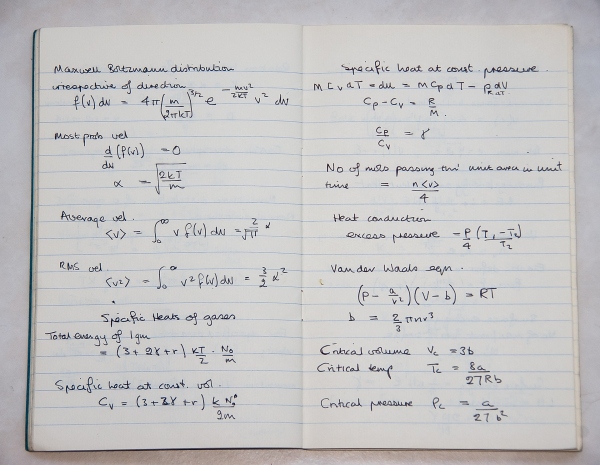 Maxwell Boltzmann distribution
irrespective of direction
f(v) dv = 4π(m/2πkT)^3/2 e^-mv²/2kT v² dv
Most prob vel
d/dv (f(v)) = 0
α = √(2kT/m)
Average vel.
<v> = ∫₀^∞ v f(v) dv = 2/√π α
RMS vel
<v²> = ∫₀^∞ v² f(v) dv = 3/2 α²
Specific Heats of gases
Total energy of 1gm
= (3 + 2γ + r) kT/2 · N₀/m
Specific heat at const. vol.
Cv = (3 + 2γ + r) k N₀/2m
Specific heat at const. pressure.
M Cv dT = du = M Cp dT - p dV
Cp - Cv = R/M.
Cp/Cv = γ
No of mols passing thro' unit area in unit
time = n<v>/4
Heat conduction
excess pressure - P/4 (T₁ - T₂)/T₂
Van der Waals eqn.
(P - a/v²)(V - b) = RT
b = 2/3 πnr³
Critical volume Vc = 3b
Critical temp Tc = 8a/27Rb
Critical pressure Pc = a/27b²